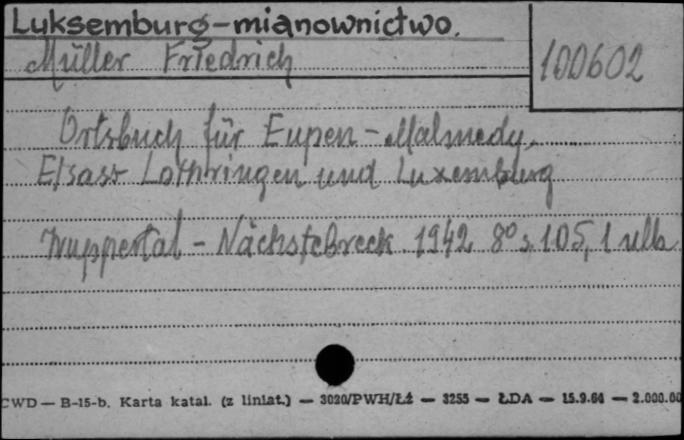 Luksemburg-mianownictwo.
Müller Friedrich
100602
Ortsbuch für Eupen-Malmedy,
Elsass Lothringen und Luxemburg
Wuppertal - Nächstebreck 1942 8° s. 105, 1 nlb
CWD — B-15-b. Karta katal. (z liniat.) — 3020/PWH/Łź — 3255 — ŁDA — 15.9.64 — 2.000.00